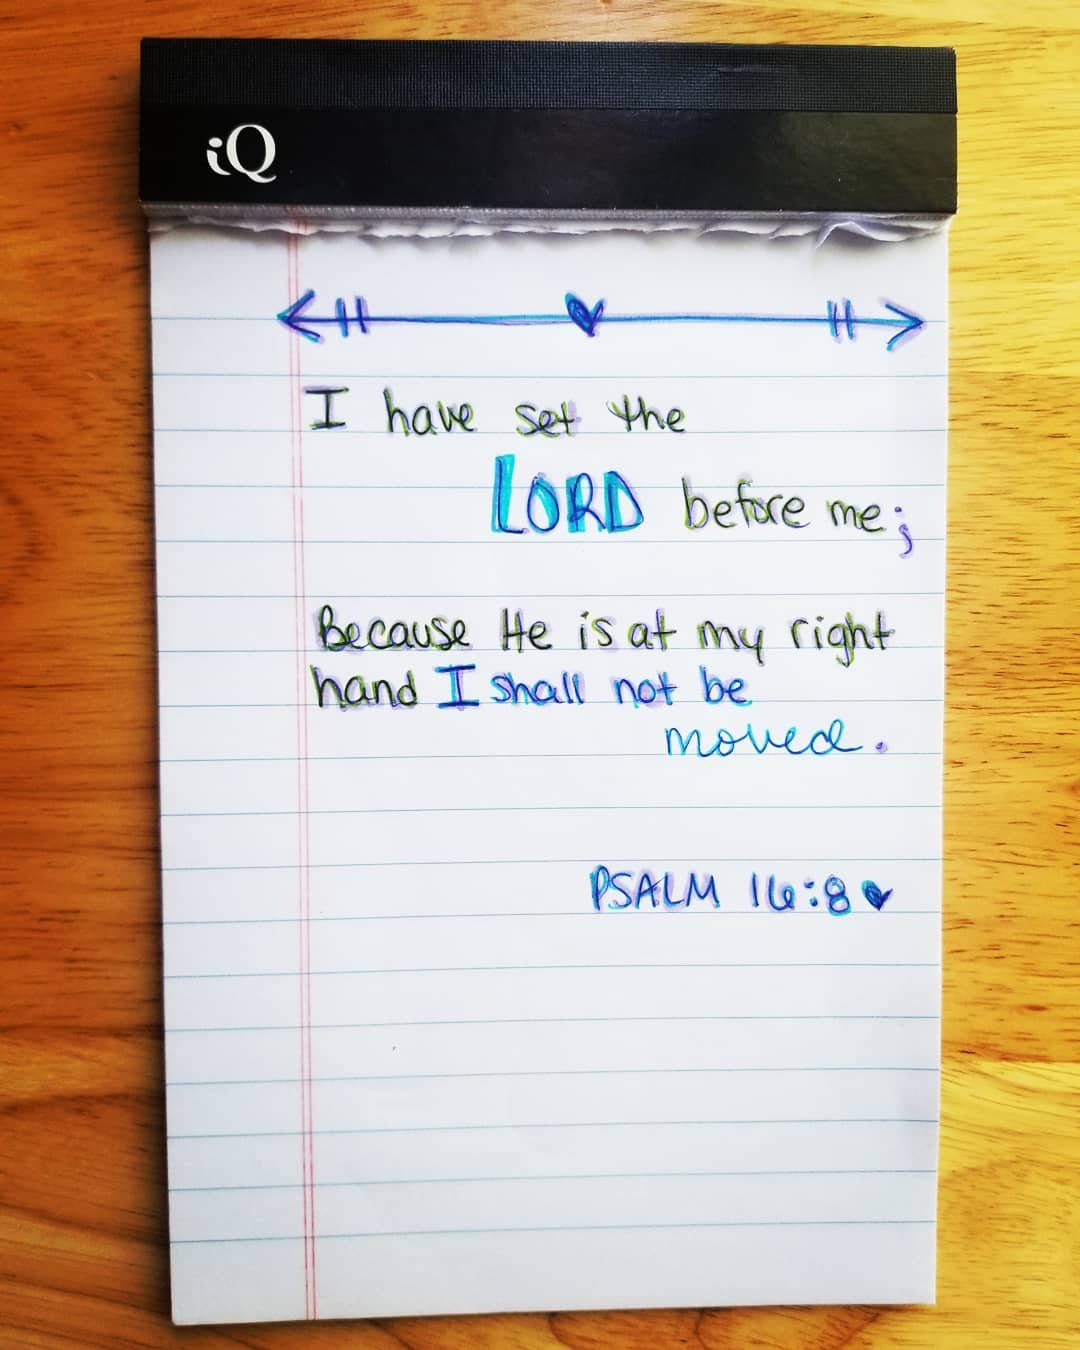 iQ
I have set the
LORD before me;
Because He is at my right
hand I shall not be
moved.
PSALM 16:8